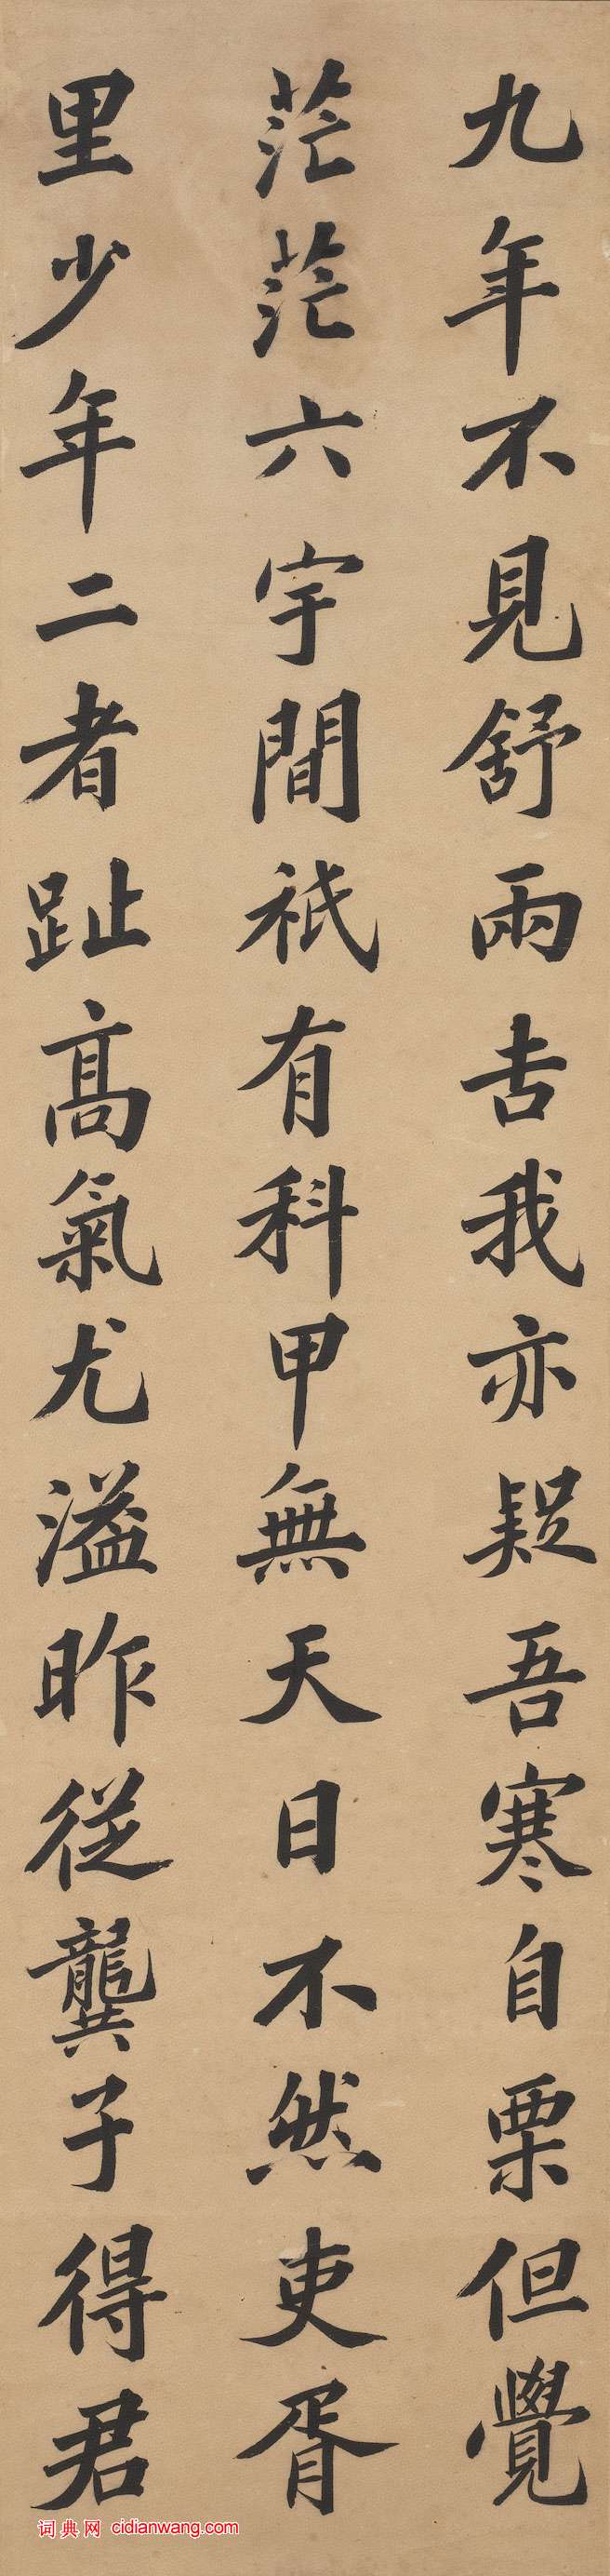 九年不見舒雨吉我亦疑吾寒自栗但覺
茫茫六宇間祇有科甲無天日不然吏胥
里少年二者趾高氣尤溢昨從龔子得君
词典网 cidianwang.com